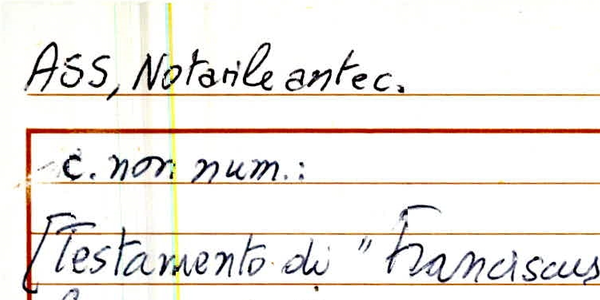 ASS, Notarile antec.
c. non num.:
[Testamento di "Franciscus